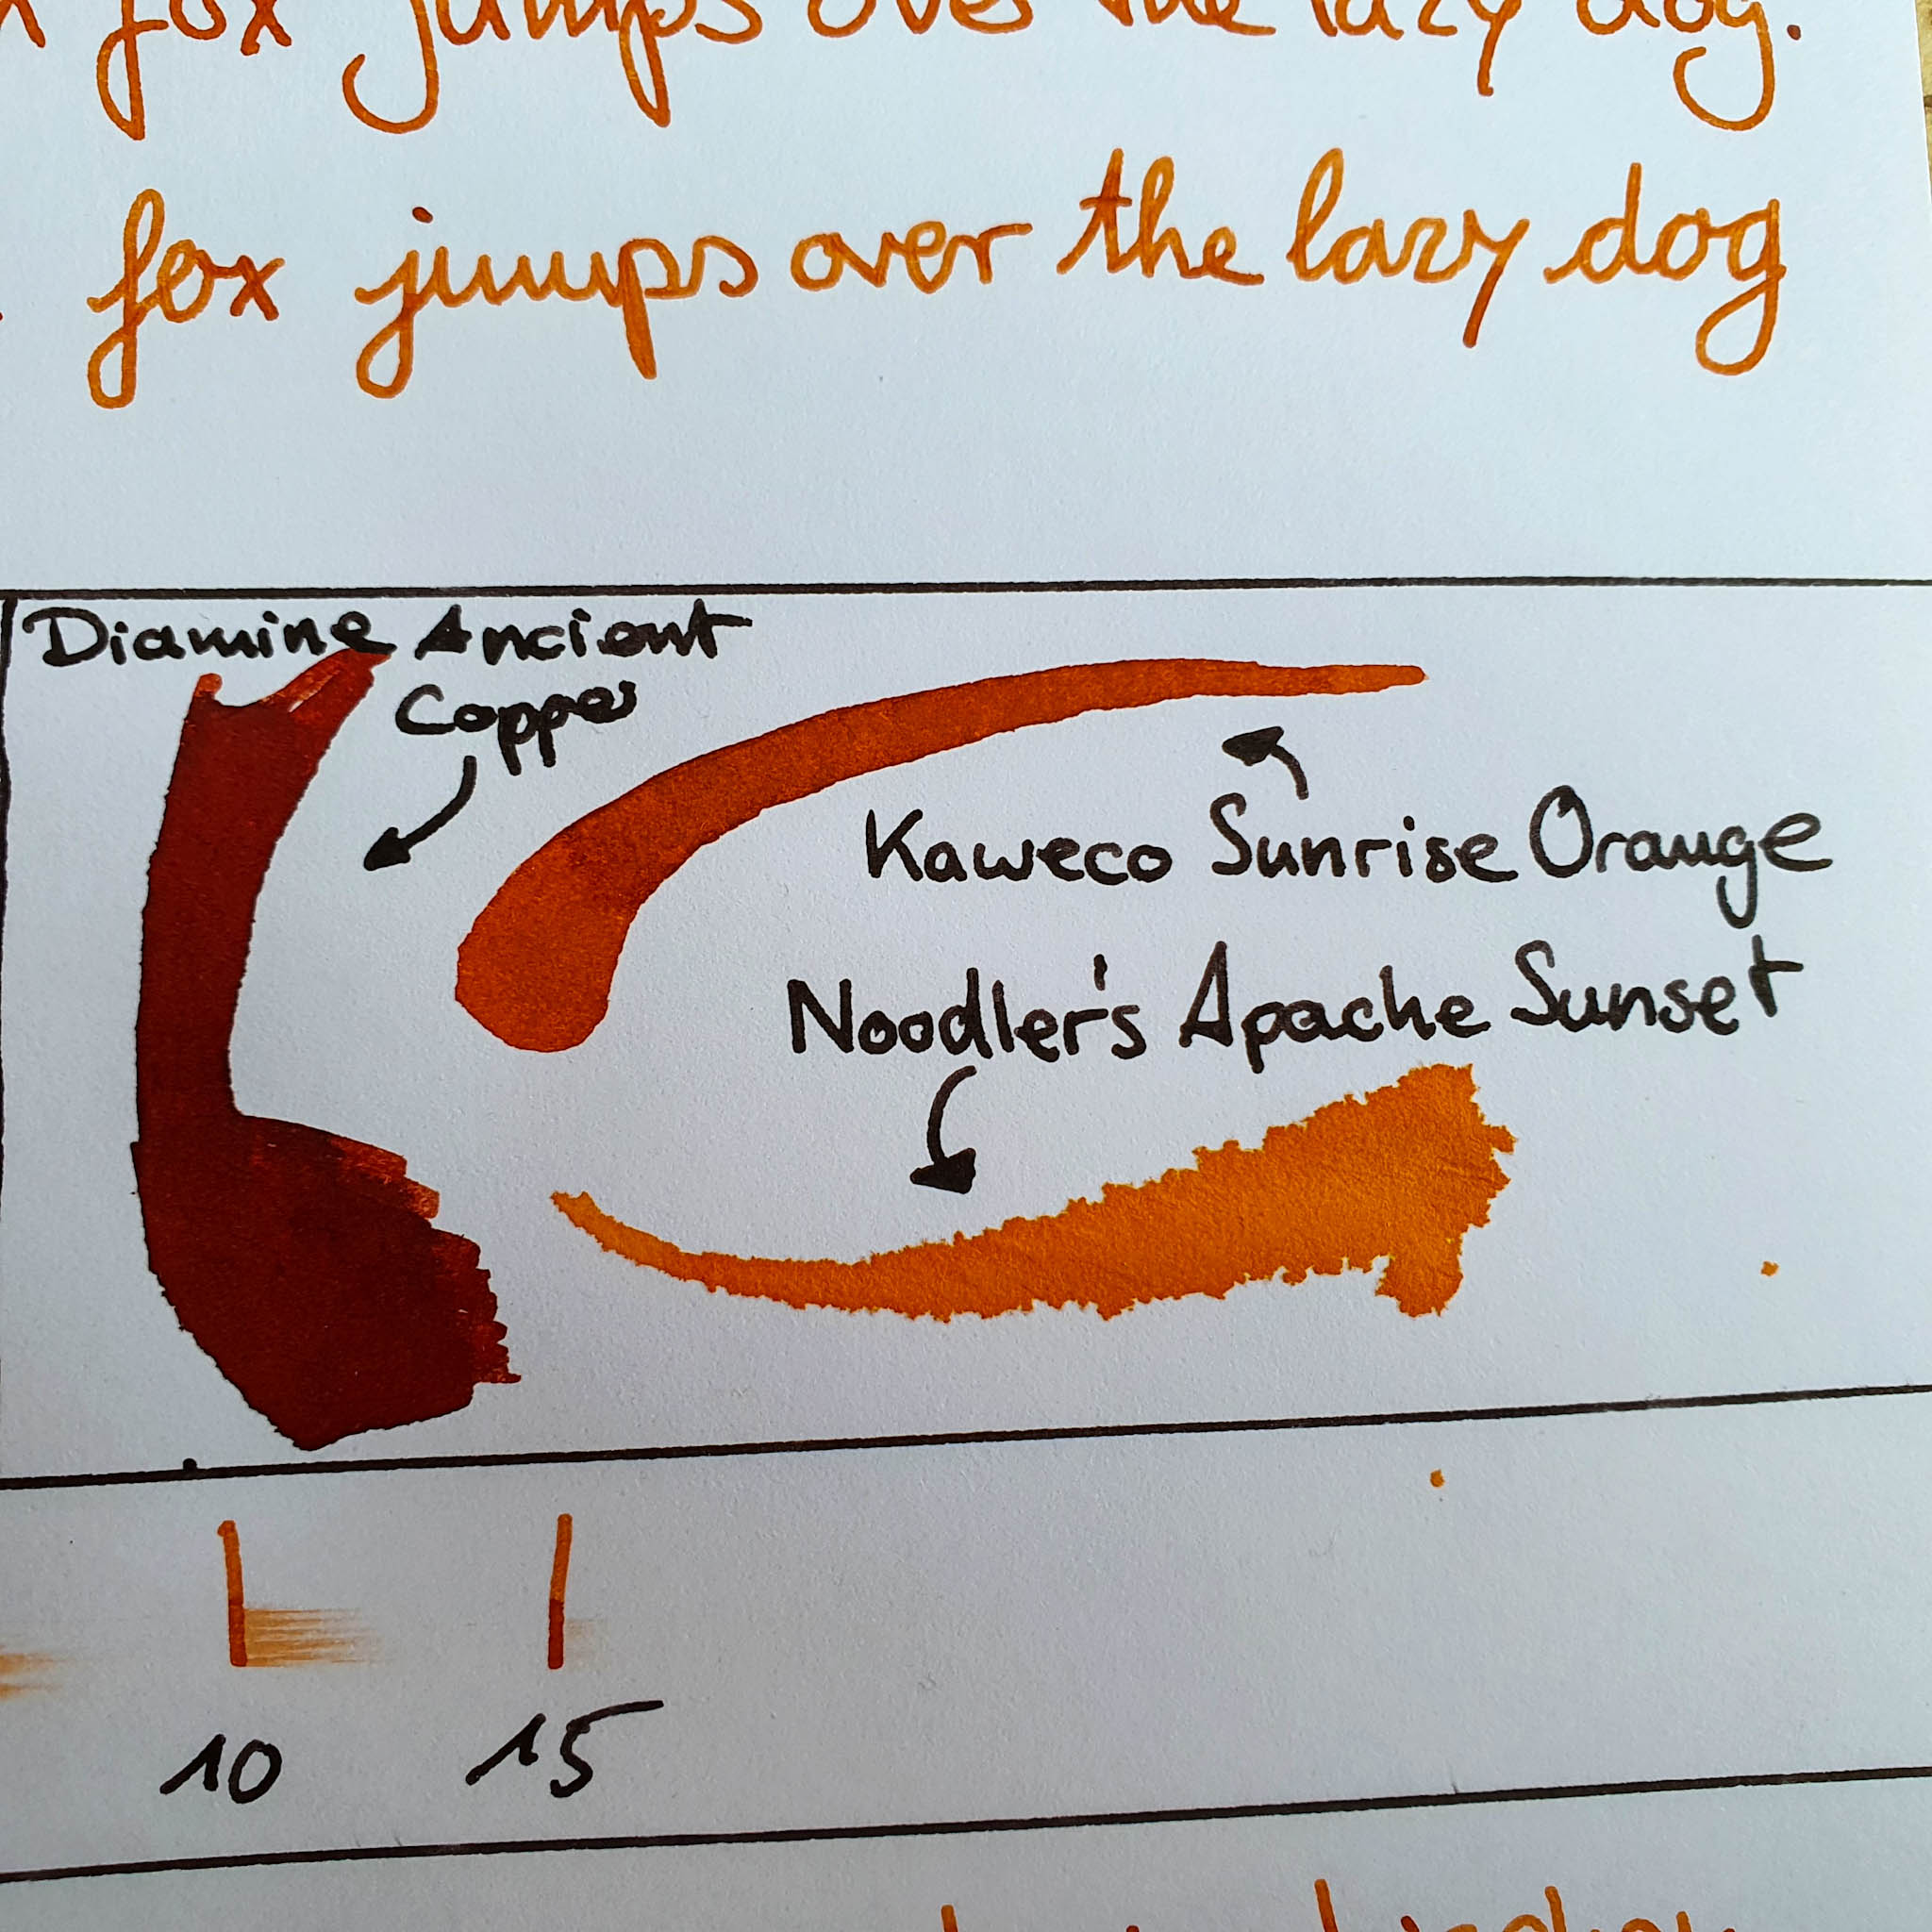 fox jumps over the lazy dog.
fox jumps over the lazy dog
Diamine Ancient
Copper
Kaweco Sunrise Orange
Noodler's Apache Sunset
10 15